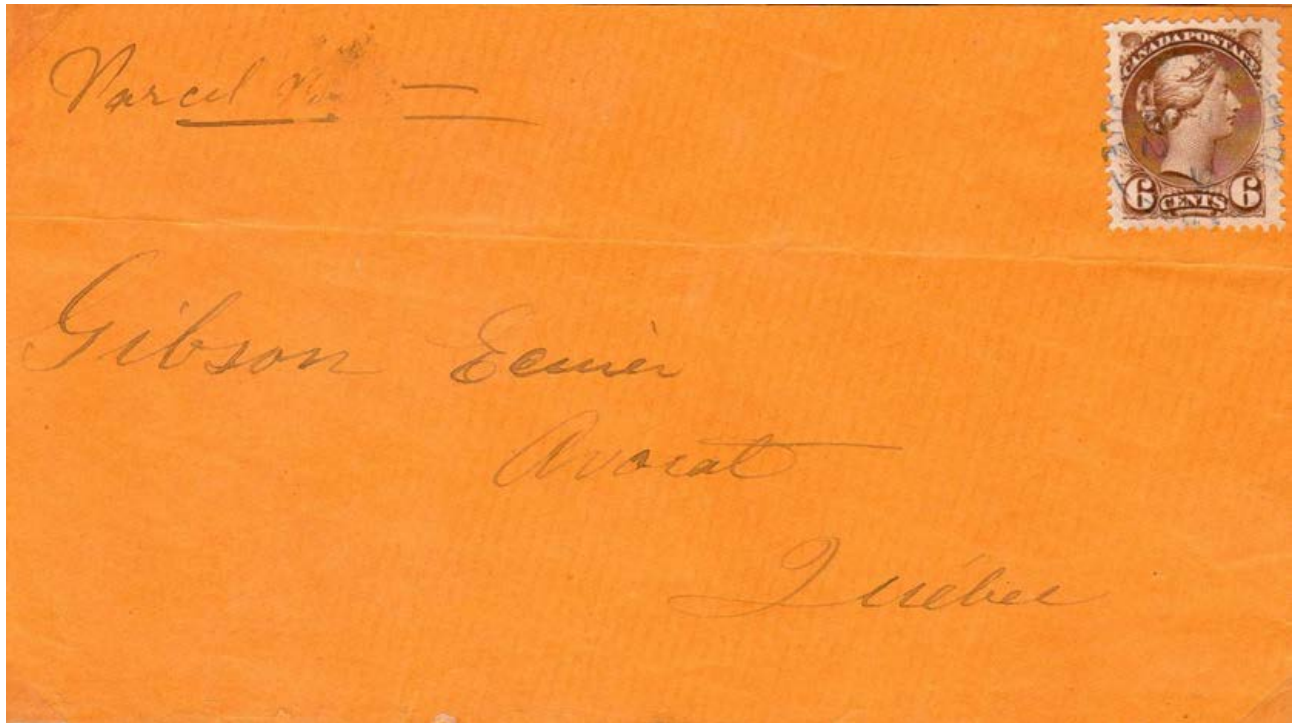 Parcel
CANADA POSTAGE
6 CENTS 6
Gibson Ecuier
Avocat
Québec